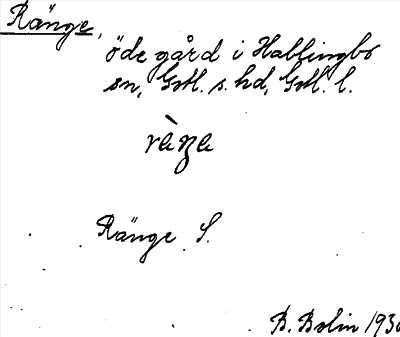 Ränge,
öde gård i Hablingbo
sn, Gotl. s. hd, Gotl. l.
Ränge S.
B. Bolin 1930